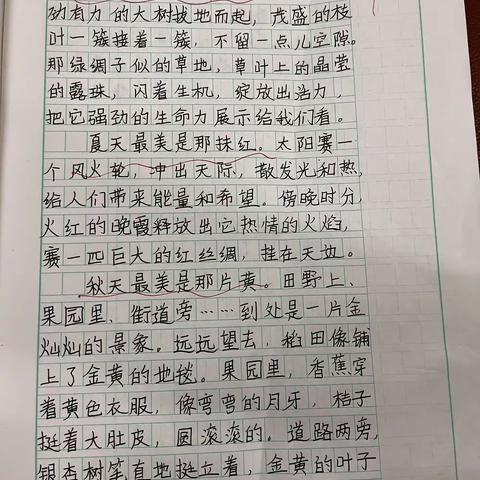 劲有力的大树拔地而起，茂盛的枝
叶一簇接着一簇，不留一点儿空隙。
那绿绸子似的草地，草叶上的晶莹
的露珠，闪着生机，绽放出活力，
把它强劲的生命力展示给我们看。
夏天最美是那抹红。太阳赛一
个风火轮，冲出天际，散发光和热，
给人们带来能量和希望。傍晚时分，
火红的晚霞释放出它热情的火焰，
赛一匹巨大的红丝绸，挂在天边。
秋天最美是那片黄。田野上、
果园里、街道旁……到处是一片金
灿灿的景象。远远望去，稻田像铺
上了金黄的地毯。果园里，香蕉穿
着黄色衣服，像弯弯的月牙，桔子
挺着大肚皮，圆滚滚的。道路两旁，
银杏树笔直地挺立着，金黄的叶子